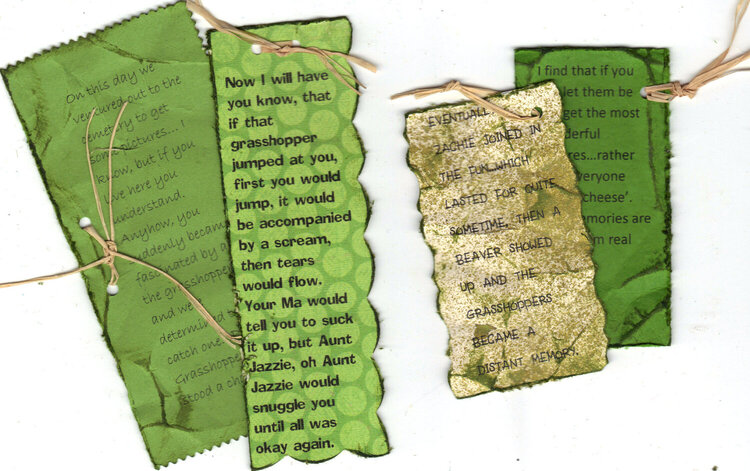 On this day we
ventured out to the
cemetery to get
some pictures... I
know, but if you
live here you
understand.
Anyhow, you
suddenly became
fascinated by a
the grasshopper
and we
determined t
catch one.
Grasshopper
stood a ch
Now I will have
you know, that
if that
grasshopper
jumped at you,
first you would
jump, it would
be accompanied
by a scream,
then tears
would flow.
Your Ma would
tell you to suck
it up, but Aunt
Jazzie, oh Aunt
Jazzie would
snuggle you
until all was
okay again.
EVENTUALL
ZACHIE JOINED IN
THE FUN...WHICH
LASTED FOR QUITE
SOMETIME, THEN A
BEAVER SHOWED
UP AND THE
GRASSHOPPERS
BECAME A
DISTANT MEMORY.
I find that if you
let them be
get the most
derful
res...rather
veryone
cheese'.
mories are
m real